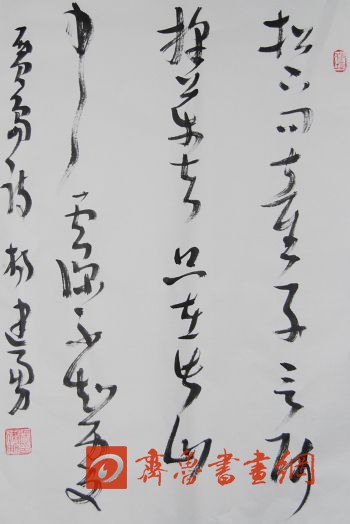 松下问童子言师
採药去只在此山
中云深不知处
贾岛诗 建勇
齐鲁書畫網